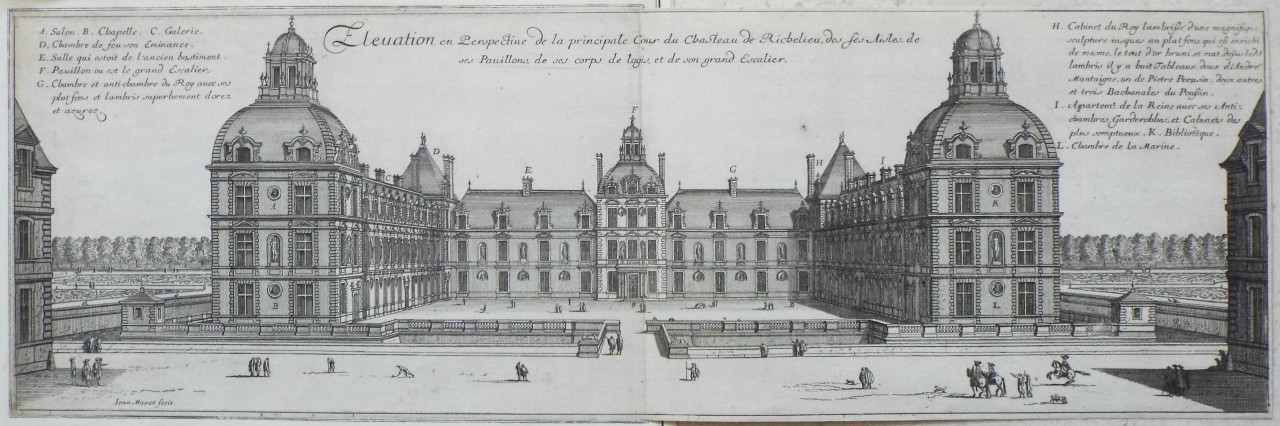 A. Salon. B. Chapelle. C. Galerie.
D. Chambre de feu son Eminance.
E. Salle qui estoit de l'ancien bastiment.
F. Pauillon ou est le grand Escalier.
G. Chambre et anti-chambre du Roy auec ses
plat fons et lambris superbement dorez
et azurez
Eleuation en Perspectiue de la principale Cour du Chasteau de Richelieu, des ses Aisles, de
ses Pauillons, de ses corps de logis, et de son grand Escalier.
H. Cabinet du Roy lambrissé d'une magnifique
sculpture iusques au plat fons, qui est enrichi
de mesme, le tout d'or bruni et mat, dessus ledit
lambris il y a huit Tableaux, deux d'André
Mantaigne, un de Pietre Perusin, deux autres
et trois Bacbanales du Poussin.
I. Appartemt. de la Reine auec ses Anti-
chambres, Garderobbes, et Cabinets des
plus somptueux. K. Bibliotêque.
L. Chambre de la Marine.
F
D
C
E
G
H
I
A
K
B
L
Iean Marot fecit.